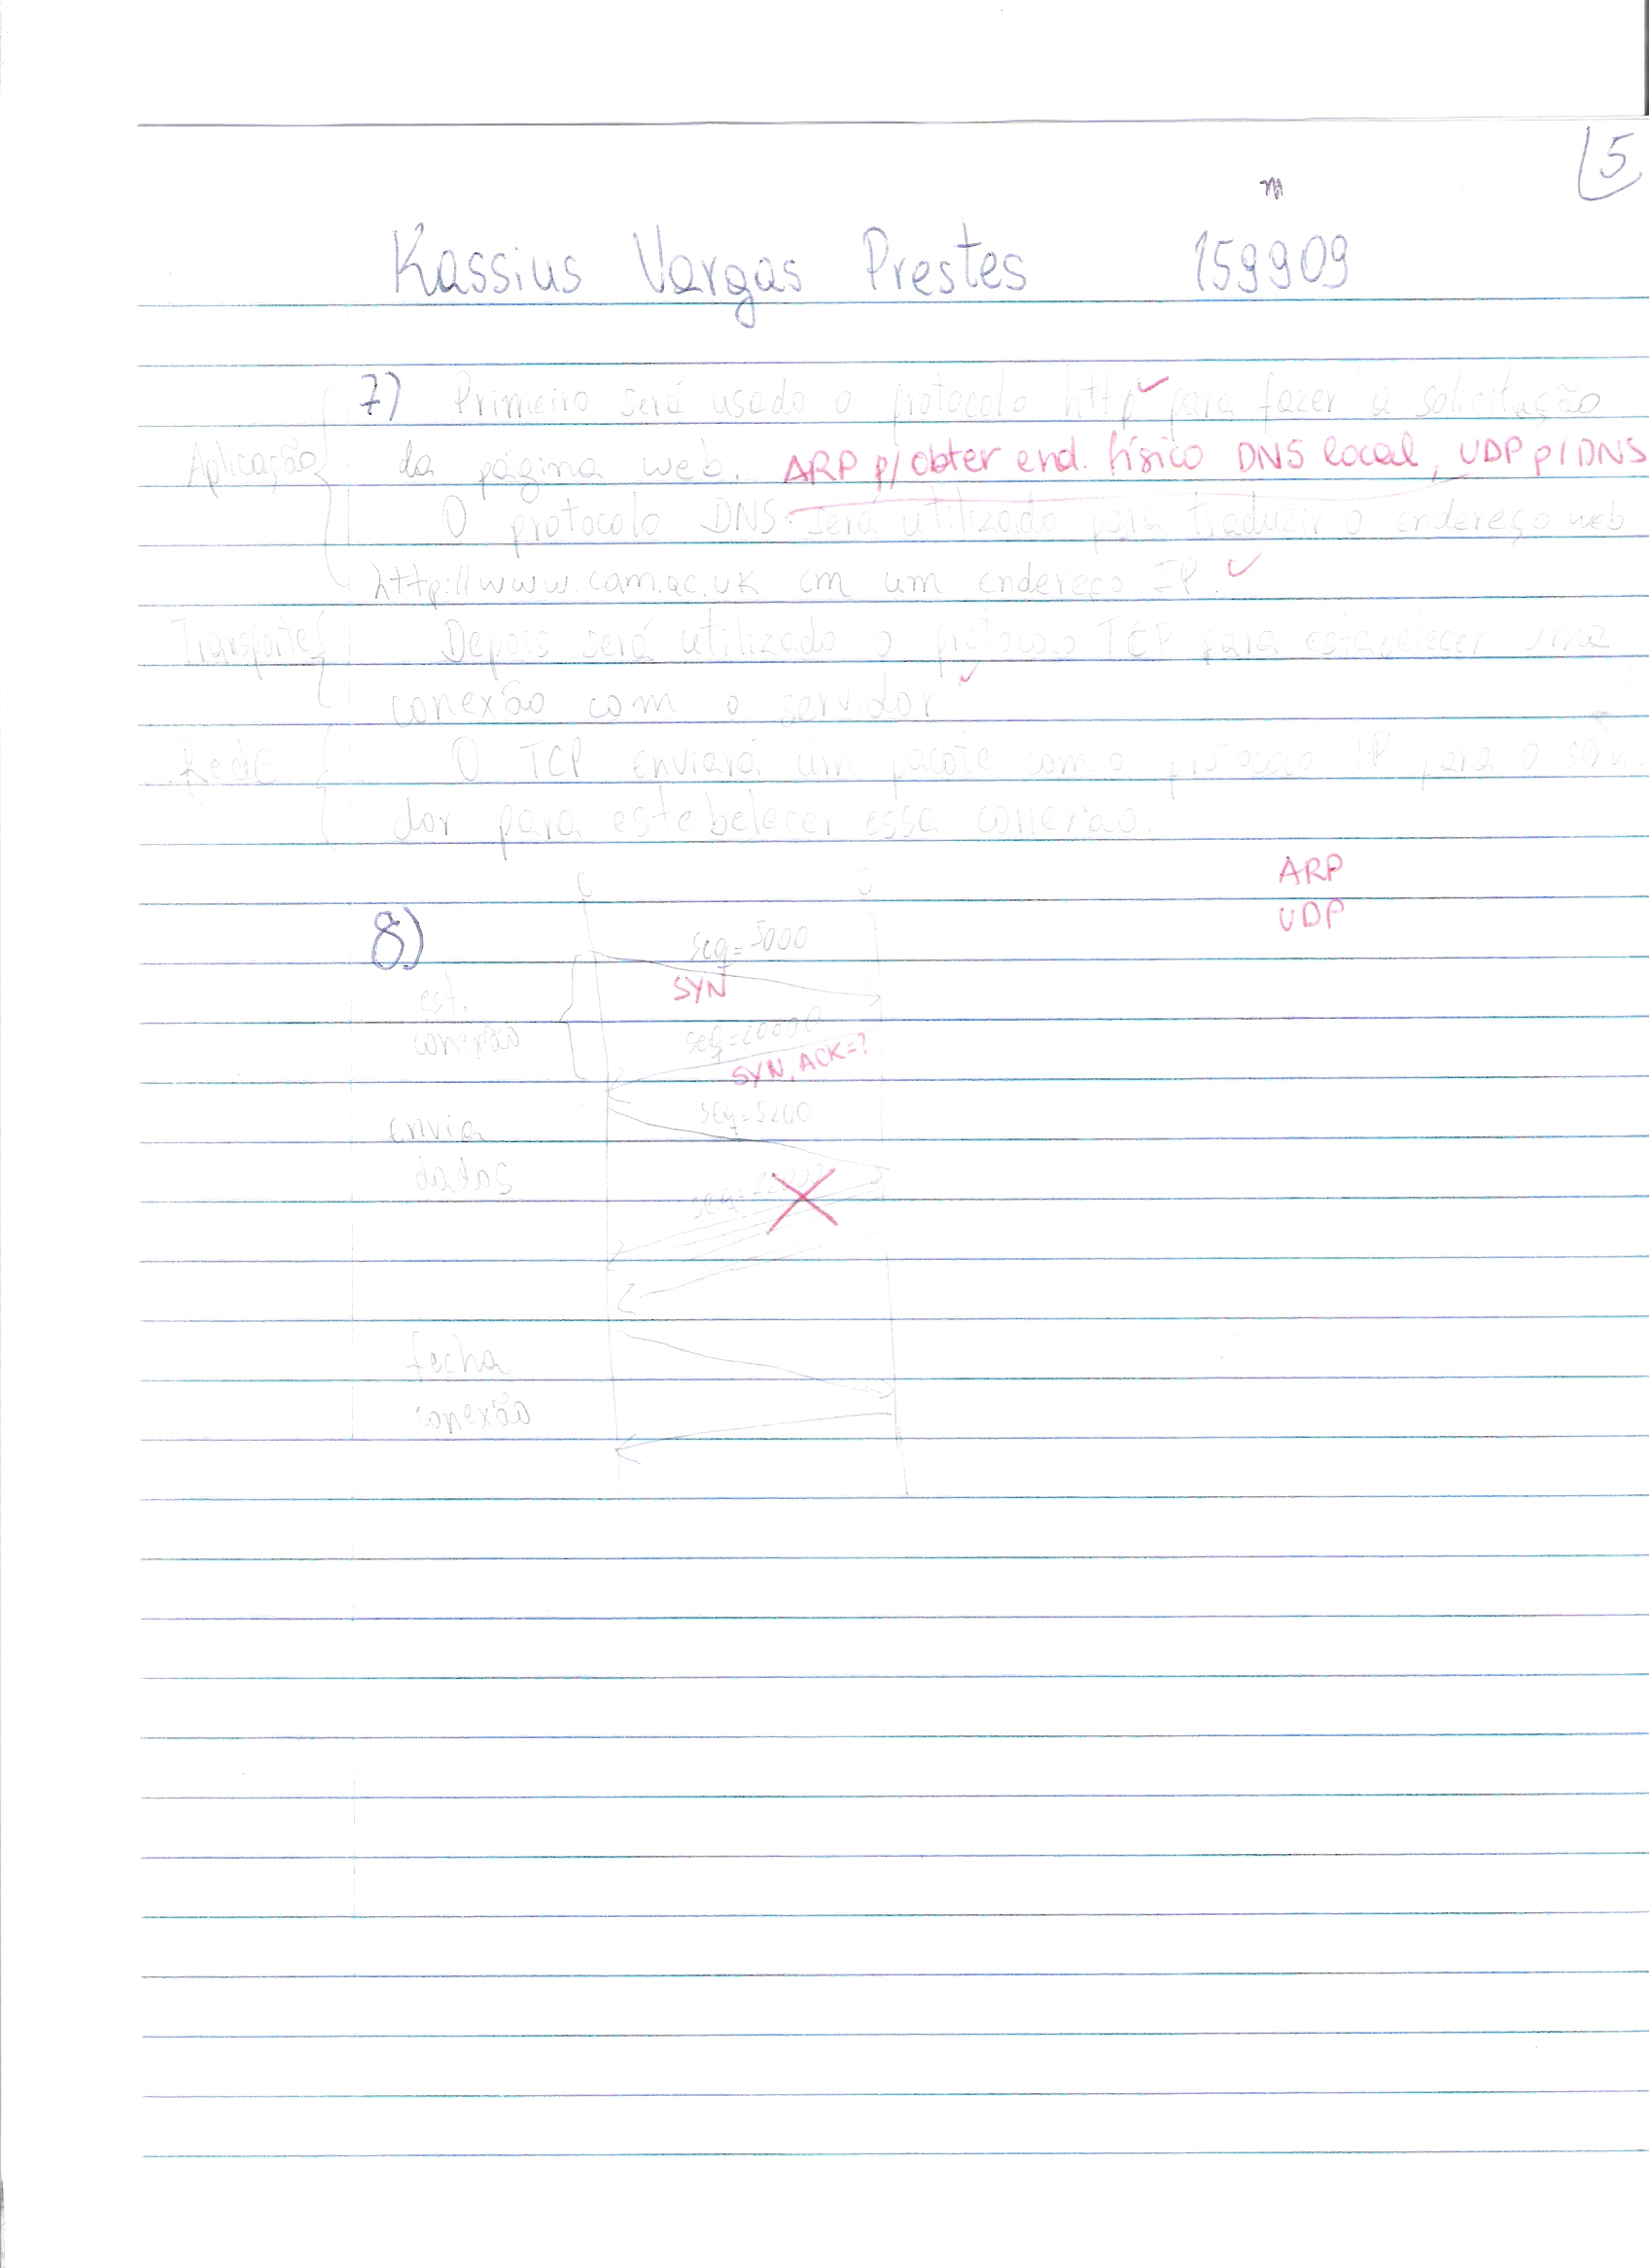 5
Kassius Vargas Prestes 159909
7) Primeiro será usado o protocolo http para fazer a solicitação
Aplicação da página web. ARP p/ obter end. físico DNS local, UDP p/ DNS
O protocolo DNS será utilizado para traduzir o endereço web
http://www.cam.ac.uk em um endereço IP.
Transporte Depois será utilizado o protocolo TCP para estabelecer uma
conexão com o servidor
Rede O TCP enviará um pacote com o protocolo IP para o servi
dor para estebelecer essa conexão.
ARP
UDP
C S
8) seq=5000
SYN
est.
conexão seq=20000
SYN, ACK=?
seq=5200
envia
dados seq=
fecha
conexão